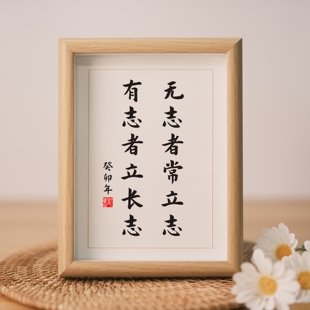 无志者常立志
有志者立长志
癸卯年